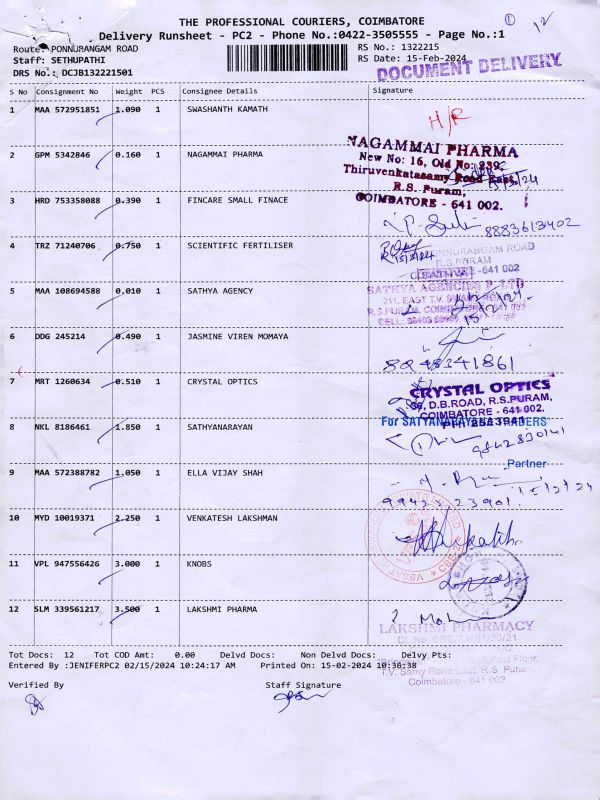 THE PROFESSIONAL COURIERS, COIMBATORE
Delivery Runsheet - PC2 - Phone No.:0422-3505555 - Page No.:1
1
12
Route: PONNURANGAM ROAD
RS No.: 1322215
Staff: SETHUPATHI
RS Date: 15-Feb-2024
DRS No.: DCJB132221501
DOCUMENT DELIVERY
S No Consignment No Weight PCS Consignee Details Signature
1 MAA 572951851 1.090 1 SWASHANTH KAMATH
H/R
2 GPM 5342846 0.160 1 NAGAMMAI PHARMA
NAGAMMAI PHARMA
New No: 16, Old No: 239,
Thiruvenkatasamy Road East,
R.S. Puram,
COIMBATORE - 641 002.
3 HRD 753358088 0.390 1 FINCARE SMALL FINACE
8883613402
4 TRZ 71240706 0.750 1 SCIENTIFIC FERTILISER
PONNURANGAM ROAD
R.S.PURAM
-641 002
15/2/24
5 MAA 108694588 0.010 1 SATHYA AGENCY
SATHYA AGENCIES P. LTD
211, EAST T.V.
R.S.PURAM,
CELL:
6 DDG 245214 0.490 1 JASMINE VIREN MOMAYA
8248341861
7 MRT 1260634 0.510 1 CRYSTAL OPTICS
CRYSTAL OPTICS
D.B.ROAD, R.S.PURAM,
COIMBATORE - 641 002.
8 NKL 8186461 1.850 1 SATHYANARAYAN
For SATYANARAYAN TRADERS
9842830141
Partner
9 MAA 572388782 1.050 1 ELLA VIJAY SHAH
15/2/24
99423 23901.
10 MYD 10019371 2.250 1 VENKATESH LAKSHMAN
11 VPL 947556426 3.000 1 KNOBS
12 SLM 339561217 3.500 1 LAKSHMI PHARMA
LAKSHMI PHARMACY
T.V. Samy Road East, R.S. Puram
Coimbatore - 641 002
Tot Docs: 12 Tot COD Amt: 0.00 Delvd Docs: Non Delvd Docs: Delvy Pts:
Entered By :JENIFERPC2 02/15/2024 10:24:17 AM Printed On: 15-02-2024 10:36:38
Verified By Staff Signature